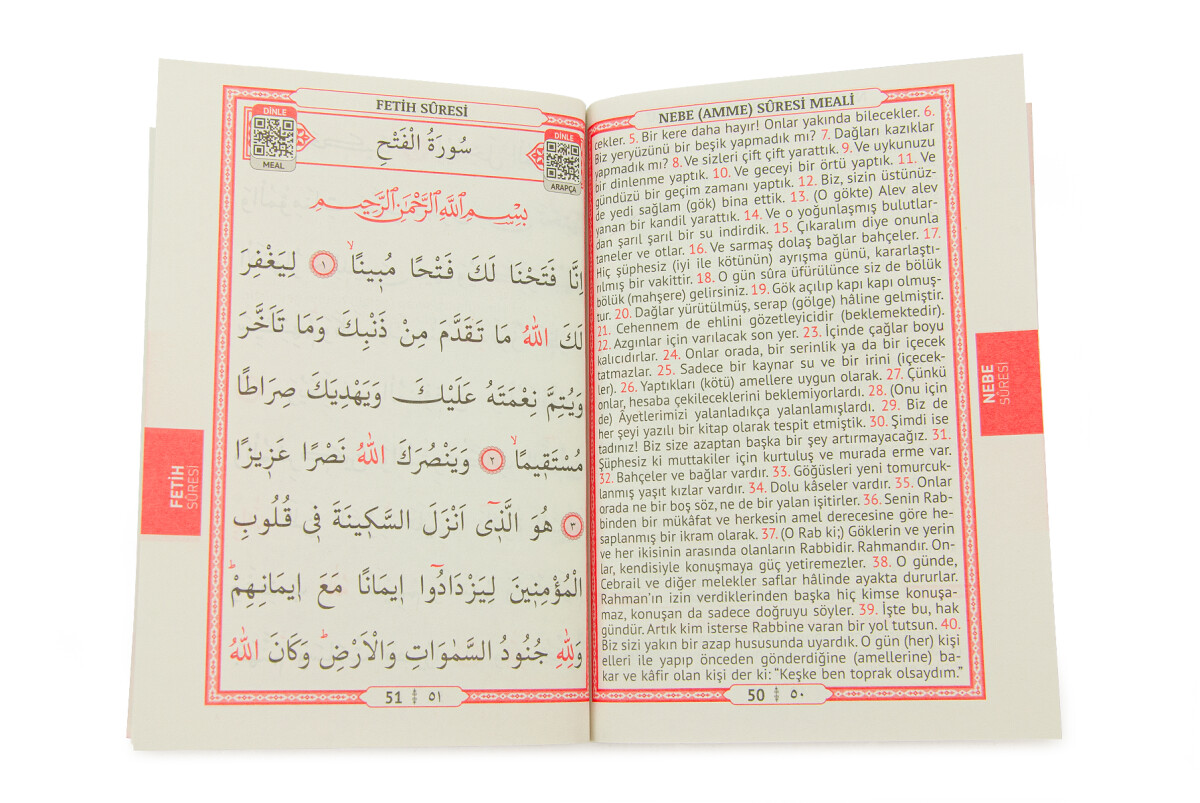 NEBE (AMME) SÛRESİ MEALİ
cekler. 5. Bir kere daha hayır! Onlar yakında bilecekler. 6.
Biz yeryüzünü bir beşik yapmadık mı? 7. Dağları kazıklar
yapmadık mı? 8. Ve sizleri çift çift yarattık. 9. Ve uykunuzu
bir dinlenme yaptık. 10. Ve geceyi bir örtü yaptık. 11. Ve
gündüzü bir geçim zamanı yaptık. 12. Biz, sizin üstünüz-
de yedi sağlam (gök) bina ettik. 13. (O gökte) Alev alev
yanan bir kandil yarattık. 14. Ve o yoğunlaşmış bulutlar-
dan şarıl şarıl bir su indirdik. 15. Çıkaralım diye onunla
taneler ve otlar. 16. Ve sarmaş dolaş bağlar bahçeler. 17.
Hiç şüphesiz (iyi ile kötünün) ayrışma günü, kararlaştı-
rılmış bir vakittir. 18. O gün sûra üfürülünce siz de bölük
bölük (mahşere) gelirsiniz. 19. Gök açılıp kapı kapı olmuş-
tur. 20. Dağlar yürütülmüş, serap (gölge) hâline gelmiştir.
21. Cehennem de ehlini gözetleyicidir (beklemektedir).
22. Azgınlar için varılacak son yer. 23. İçinde çağlar boyu
kalıcıdırlar. 24. Onlar orada, bir serinlik ya da bir içecek
tatmazlar. 25. Sadece bir kaynar su ve bir irini (içecek-
ler). 26. Yaptıkları (kötü) amellere uygun olarak. 27. Çünkü
onlar, hesaba çekileceklerini beklemiyorlardı. 28. (Onu için
de) Âyetlerimizi yalanladıkça yalanlamışlardı. 29. Biz de
her şeyi yazılı bir kitap olarak tespit etmiştik. 30. Şimdi ise
tadınız! Biz size azaptan başka bir şey artırmayacağız. 31.
Şüphesiz ki muttakiler için kurtuluş ve murada erme var.
32. Bahçeler ve bağlar vardır. 33. Göğüsleri yeni tomurcuk-
lanmış yaşıt kızlar vardır. 34. Dolu kâseler vardır. 35. Onlar
orada ne bir boş söz, ne de bir yalan işitirler. 36. Senin Rab-
binden bir mükâfat ve herkesin amel derecesine göre he-
saplanmış bir ikram olarak. 37. (O Rab ki;) Göklerin ve yerin
ve her ikisinin arasında olanların Rabbidir. Rahmandır. On-
lar, kendisiyle konuşmaya güç yetiremezler. 38. O günde,
Cebrail ve diğer melekler saflar hâlinde ayakta dururlar.
Rahman’ın izin verdiklerinden başka hiç kimse konuşa-
maz, konuşan da sadece doğruyu söyler. 39. İşte bu, hak
gündür. Artık kim isterse Rabbine varan bir yol tutsun. 40.
Biz sizi yakın bir azap hususunda uyardık. O gün (her) kişi
elleri ile yapıp önceden gönderdiğine (amellerine) ba-
kar ve kâfir olan kişi der ki: “Keşke ben toprak olsaydım.”
50 ٥٠
NEBE
SÛRESİ
FETİH SÛRESİ
DİNLE
MEAL
سُورَةُ الْفَتْحِ
DİNLE
ARAPÇA
بِسْمِ اللَّهِ الرَّحْمَنِ الرَّحِيمِ
اِنَّا فَتَحْنَا لَكَ فَتْحًا مُبِينًاۙ ١ لِيَغْفِرَ
لَكَ اللّٰهُ مَا تَقَدَّمَ مِنْ ذَنْبِكَ وَمَا تَاَخَّرَ
وَيُتِمَّ نِعْمَتَهُ عَلَيْكَ وَيَهْدِيَكَ صِرَاطًا
مُسْتَقِيمًاۙ ٢ وَيَنْصُرَكَ اللّٰهُ نَصْرًا عَزِيزًا
٣ هُوَ الَّذِٓي اَنْزَلَ السَّكِينَةَ فِي قُلُوبِ
الْمُؤْمِنِينَ لِيَزْدَادُٓوا اِيمَانًا مَعَ اِيمَانِهِمْۜ
وَلِلّٰهِ جُنُودُ السَّمٰوَاتِ وَالْاَرْضِۜ وَكَانَ اللّٰهُ
51 ٥١
FETİH
SÛRESİ